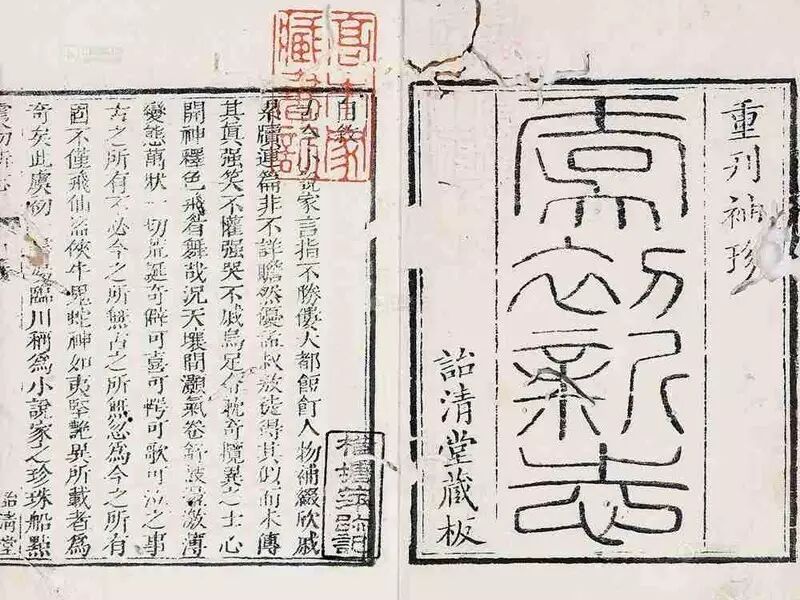 重刊袖珍
虞初新志
詒清堂藏板
自敘
今小說家言指不勝僂大都餖飣人物補綴欣戚
累牘連篇非不詳贍然優孟叔敖徒得其似而未傳
其真强笑不懽强哭不戚烏足令耽奇攬異之士心
開神釋色飛眉舞哉況天壤間灝氣卷舒鼓盪激薄
變態萬狀一切荒誕奇僻可喜可愕可歌可泣之事
古之所有不必今之所無古之所無忽爲今之所有
固不僅飛仙盜俠牛鬼蛇神如夷堅艷異所載者爲
奇矣此虞初湯臨川稱爲小說家之珍珠船點
虞初新志
詒清堂
藏書記